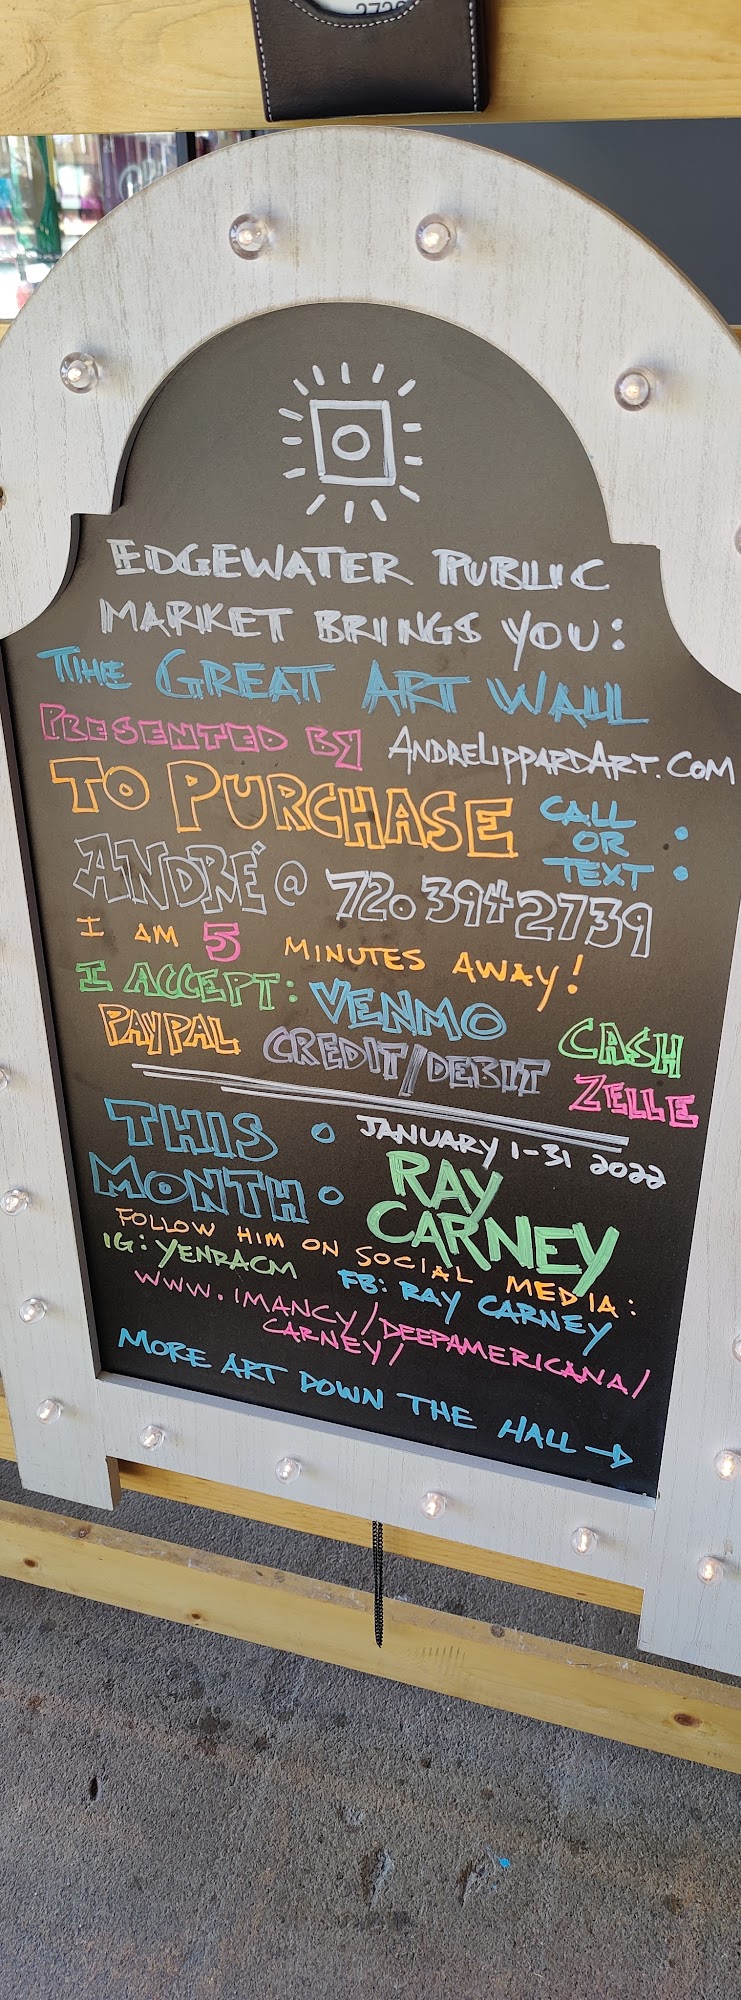 EDGEWATER PUBLIC
MARKET BRINGS YOU:
THE GREAT ART WALL
PRESENTED BY ANDRELIPPARDART.COM
TO PURCHASE CALL OR TEXT :
ANDRÉ @ 720 394 2739
I AM 5 MINUTES AWAY!
I ACCEPT: VENMO CASH
PAYPAL CREDIT/DEBIT ZELLE
THIS MONTH : JANUARY 1-31 2022
RAY CARNEY
FOLLOW HIM ON SOCIAL MEDIA:
IG: YENRACM FB: RAY CARNEY
WWW.IMANCY/DEEPAMERICANA/
CARNEY/
MORE ART DOWN THE HALL →